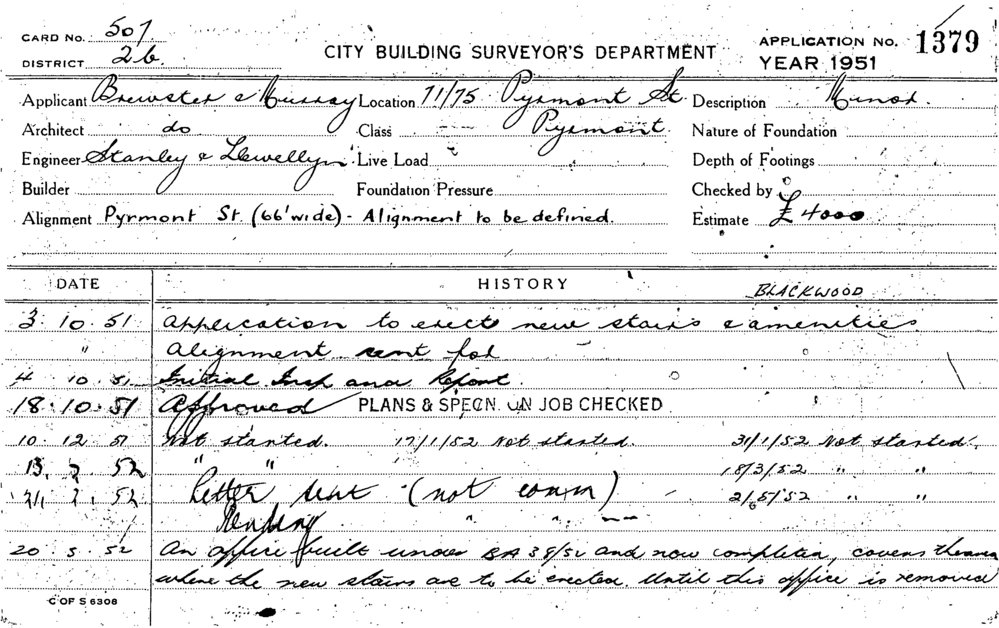 CARD No. 507
DISTRICT 26.
CITY BUILDING SURVEYOR'S DEPARTMENT
APPLICATION No. 1379
YEAR 1951
Applicant Brewster & Murray Location 71/75 Pyrmont St. Description Minor.
Architect do Class Pyrmont. Nature of Foundation
Engineer Stanley & Llewellyn. Live Load Depth of Footings
Builder Foundation Pressure Checked by
Alignment Pyrmont St. (66' wide) - Alignment to be defined. Estimate £4000
DATE HISTORY BLACKWOOD
3. 10. 51 Application to erect new stairs & amenities
" Alignment sent for
4 10. 51 Initial Insp and Report.
18. 10. 51 Approved PLANS & SPECN. ON JOB CHECKED
10. 12. 51 Not started. 17/1/52 Not started. 31/1/52 Not started.
13. 52 " " 18/3/52 " "
21. 52 Letter sent (not comm) - 2/5/52 " "
Pending " "
20. 5. 52 An office built under BA 38/52 and now completed, covers the area
where the new stairs are to be erected. Until this office is removed
C OF S 6308